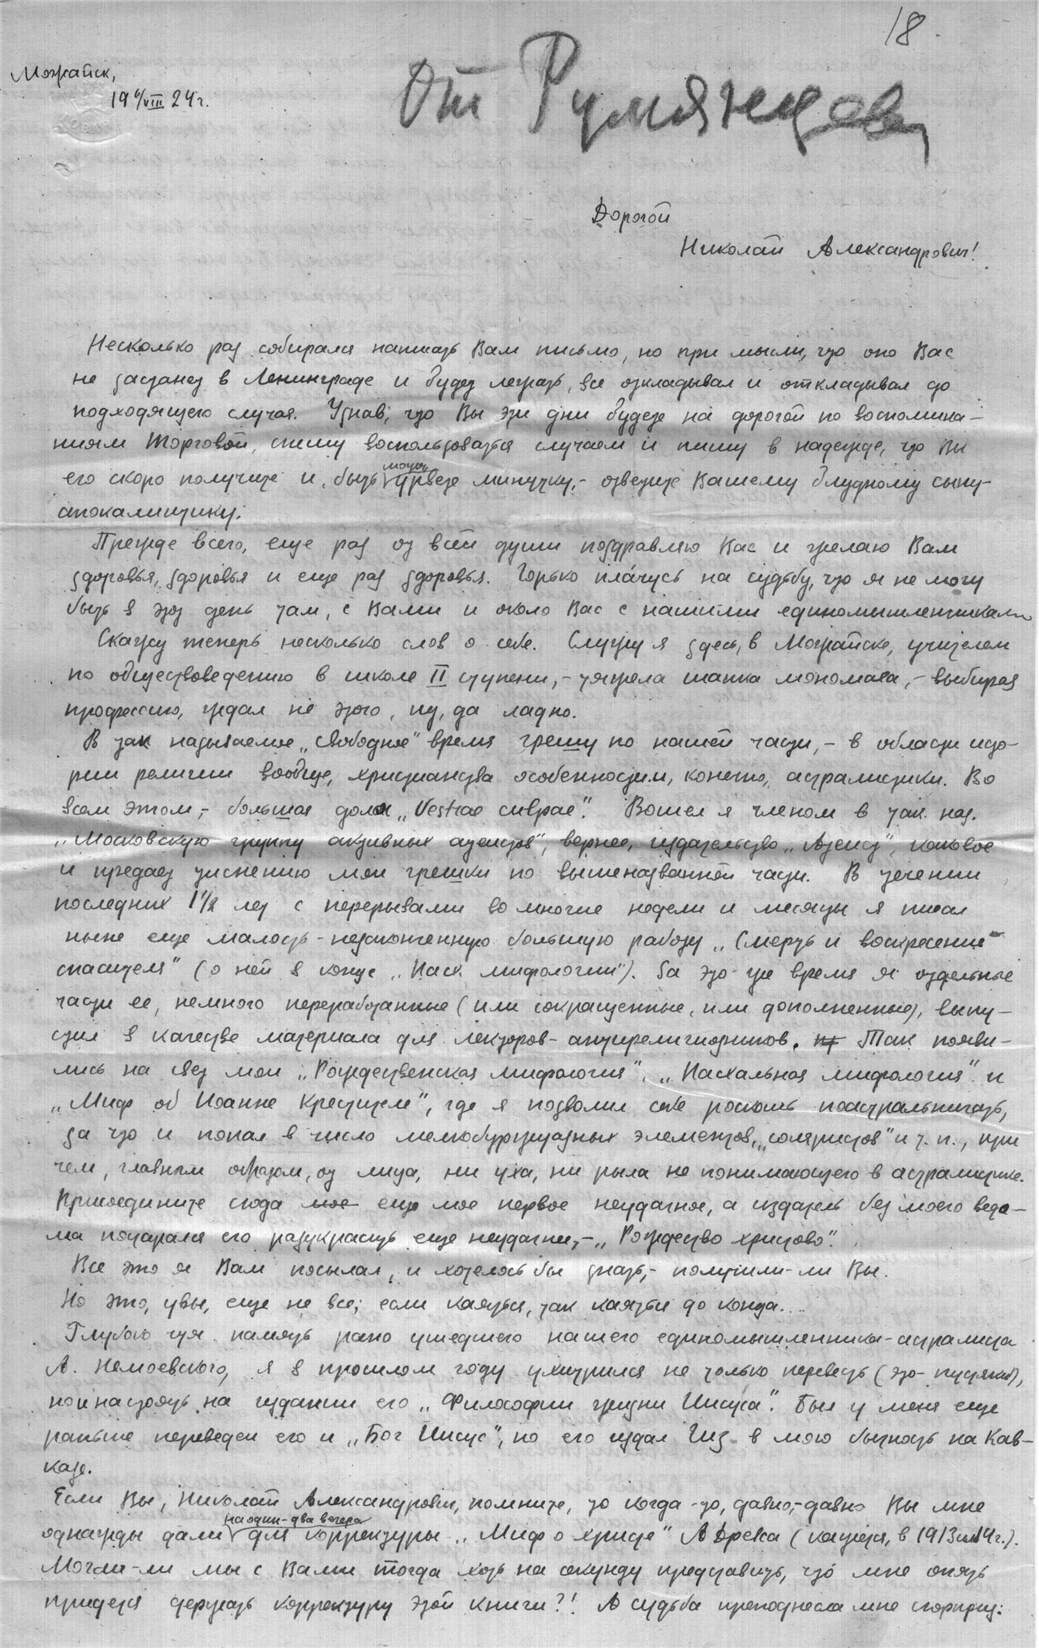 18.
От Румянцева
Можайск,
19 6/VIII 24 г.
Дорогой
Николай Александрович!
Несколько раз собирался написать Вам письмо, но при мысли, что оно Вас
не застанет в Ленинграде и будет лежать, все откладывал и откладывал до
подходящего случая. Узнав, что Вы эти дни будете на дорогой по воспомина-
ниям Торговой, спешу воспользоваться случаем и пишу в надежде, что Вы
его скоро получите и, быть может урвете минутку, - ответите Вашему блудному сыну-
апокалиптику.
Прежде всего, еще раз от всей души поздравляю Вас и желаю Вам
здоровья, здоровья и еще раз здоровья. Горько плачусь на судьбу, что я не могу
быть в этот день там, с Вами и около Вас с нашими единомышленниками
Скажу теперь несколько слов о себе. Служу я здесь, в Можайске, учителем
по обществоведению в школе II ступени, - тяжела шапка мономаха, - выбирая
профессию, ждал не этого, ну, да ладно.
В так называемое „свободное" время грешу по нашей части, - в области исто-
рии религии вообще, христианства особенности, конечно, астралистики. Во
всем этом, - большая доля „Vestrae culpae". Вошел я членом в так. наз.
„Московскую группу активных атеистов", вернее, издательство „Атеист", каковое
и предает тиснению мои грешки по вышеназванной части. В течении
последних 1½ лет с перерывами во многие недели и месяцы я писал
ныне еще малость-незаконченную большую работу „Смерть и воскресение
спасителя" (о ней в конце „Пасх. мифологии"). За это-же время я отдельные
части ее, немного переработанные (или сокращенные, или дополненные), выпу-
стил в качестве материала для лекторов-антирелигиозников. Так появи-
лись на свет мои „Рождественская мифология", „Пасхальная мифология" и
„Миф об Иоанне Крестителе", где я позволил себе роскошь поастральничать,
за что и попал в число мелкобуржуазных элементов, „соляристов" и т. п., при
чем, главным образом, от лица, ни уха, ни рыла не понимающего в астралистике.
Присоедините сюда мое еще мое первое неудачное, а издатель без моего ведо-
ма постарался его разукрасить еще неудачней, - „Рождество христово".
Все это я Вам посылал, и хотелось бы знать, - получили-ли Вы.
Но это, увы, еще не все; если каяться, так каяться до конца...
Глубоко чтя память рано ушедшего нашего единомышленника-астралиста
А. Немоевского, я в прошлом году ухитрился не только перевесть (это - пустяки),
но и настоять на издании его „Философии жизни Иисуса". Был у меня еще
раньше переведен его и „Бог Иисус", но его издал Гиз в мою бытность на Кав-
казе.
Если Вы, Николай Александрович, помните, то когда-то, давно, - давно Вы мне
однажды дали на один-два вечера для корректуры „Миф о христе" А Древса (кажется, в 1913 или 14 г.).
Могли-ли мы с Вами тогда хоть на секунду представить, что мне опять
придется держать корректуру этой книги?! А судьба преподнесла мне сюрприз: